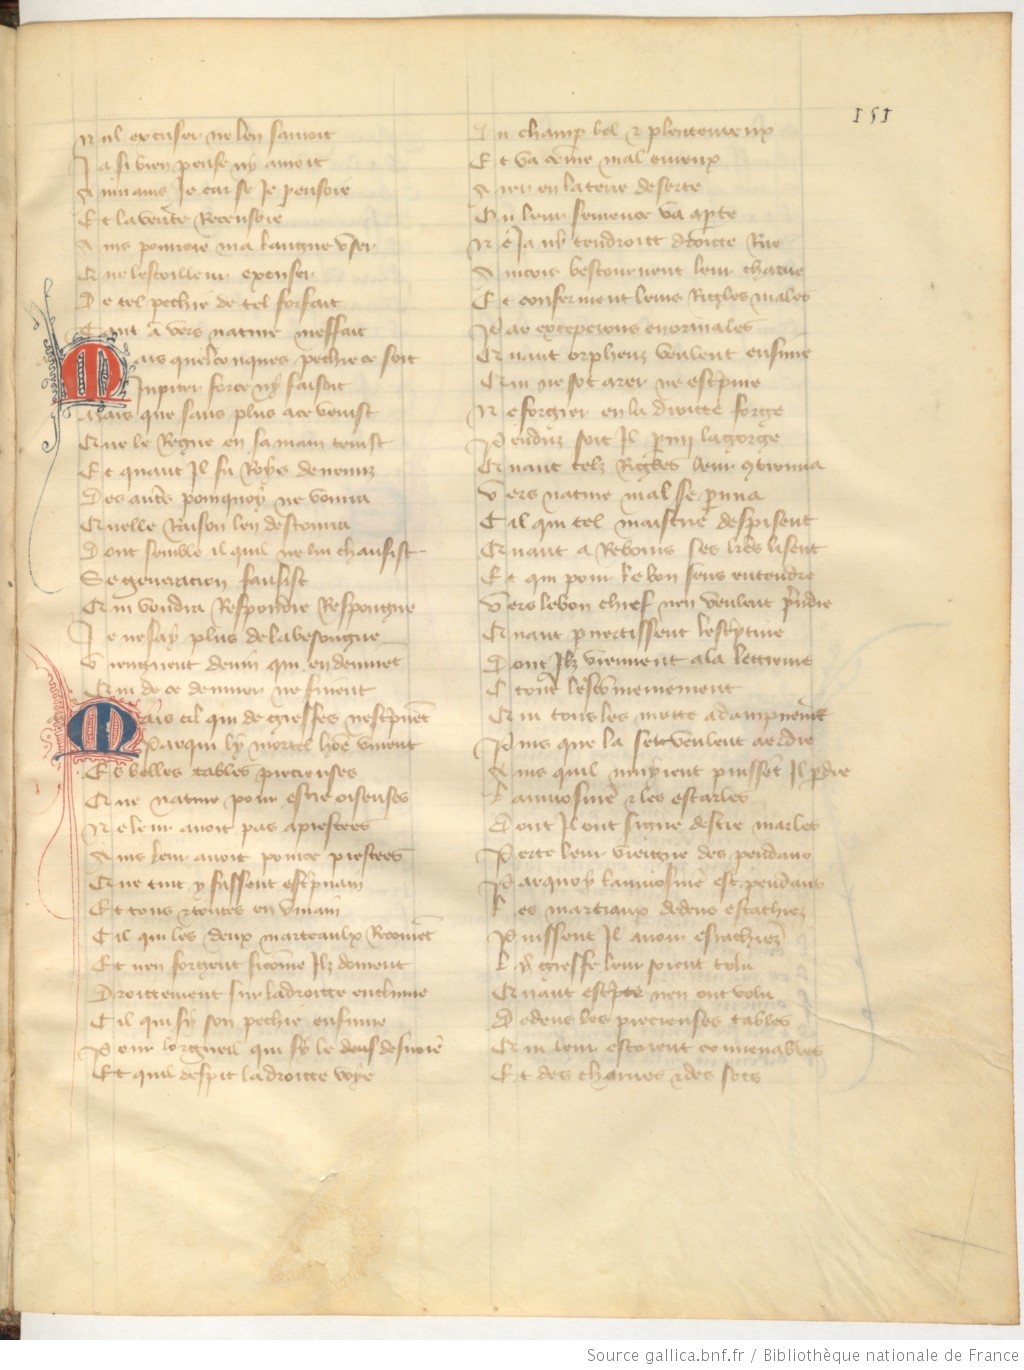 151
Nul excuser ne len sauroit
Ja si bien pense ny auroit
Aumains Je car se Je pensoie
Et la verite Recensoie
Ains pourroie ma langue user
Que lescoilleur excuser
De tel pechie de tel forfait
Tant a vers nature meffait
Mais quelconques pechie ce soit
Jupiter force ny faisoit
Mais que sans plus a ce venist
Que le Regne en sa main tenist
Et quant Il fu Roys devenuz
Des autres pourquoy ne
Quelle Raison len destourna
Dont semble il quil ne lui chausist
Se generacion fausist
Qui vouldra Respondre Respongne
Je ne say plus de la besongne
Viengnent devin qui en devinent
Qui de ce deviner ne finent
Mais cil qui de greffes nescripvent
Par qui ly mortel home vivent
Es belles tables precieuses
Que nature pour estre oiseuses
Ne leur avoit pas aprestees
Ains leur avoit pource prestees
Que tuit y fussent escripvain
Et tous et toutes en vivain
Cil qui les deux marteaulx Recoivent
Et nen forgent si come Ilz doivent
Droittement sur la droitte enclume
Cil qui sy son pechie enfume
Pour lorgueil qui sy le desvoie
Et quil despit la droitte voye
Du champ bel et plentureux
Et va come mal eureux
Arer en la terre deserte
Ou leur semence va a perte
Ne Ja ny tendront droitte Rue
Aincois bestournent leur charue
Et conferment leurs Rigles males
Par excepcions enormales
Quant orpheuz veulent ensuir
Qui ne sot arer ne escripre
Ne forgier en la droitte forge
Penduz soit Il parmi la gorge
Quant telz Rigles leur controuva
Vers nature mal se prouva
Cil qui tel maistrie despisent
Quant a Rebours ses letres lisent
Et qui pour le bon sens entendre
Vers le bon chief nen veulent prendre
Quant pervertissent lescripture
Dont Ilz viennent a la lecture
O tout lescommeniement
Qui tous les mette a dampnement
Puis que la se veulent aerdre
Ains quil muyrent puissent Il perdre
Laumosniere et les estalles
Dont Il ont signe destre malles
Perte leur viengne des pendans
Par quoy laumosniere est pendans
Les marteaux dedens estachiez
Puissent Il avoir esrachiez
Ly greffe leur soient tolu
Quant escripre nen ont volu
Dedens les precieuses tables
Qui leur estoient convenables
Et des charues et des socs